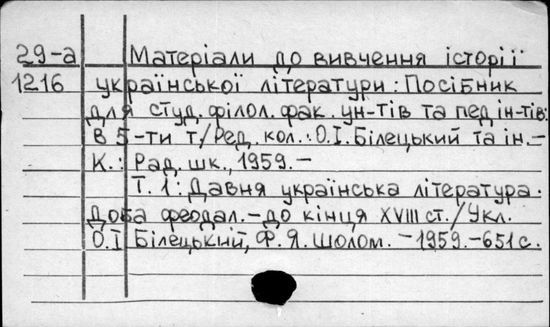 29-а Матеріали до вивчення історії
1216 української літератури: Посібник
для студ. філол. фак. ун-тів та пед. ін-тів:
В 5-ти т/Ред. кол.: О.І. Білецький та ін.-
К.: Рад. шк., 1959.-
Т. 1: Давня українська література.
Доба феодал.-до кінця XVIII ст./Укл.
О.І Білецький, Ф. Я. Шолом. - 1959.-651 с.